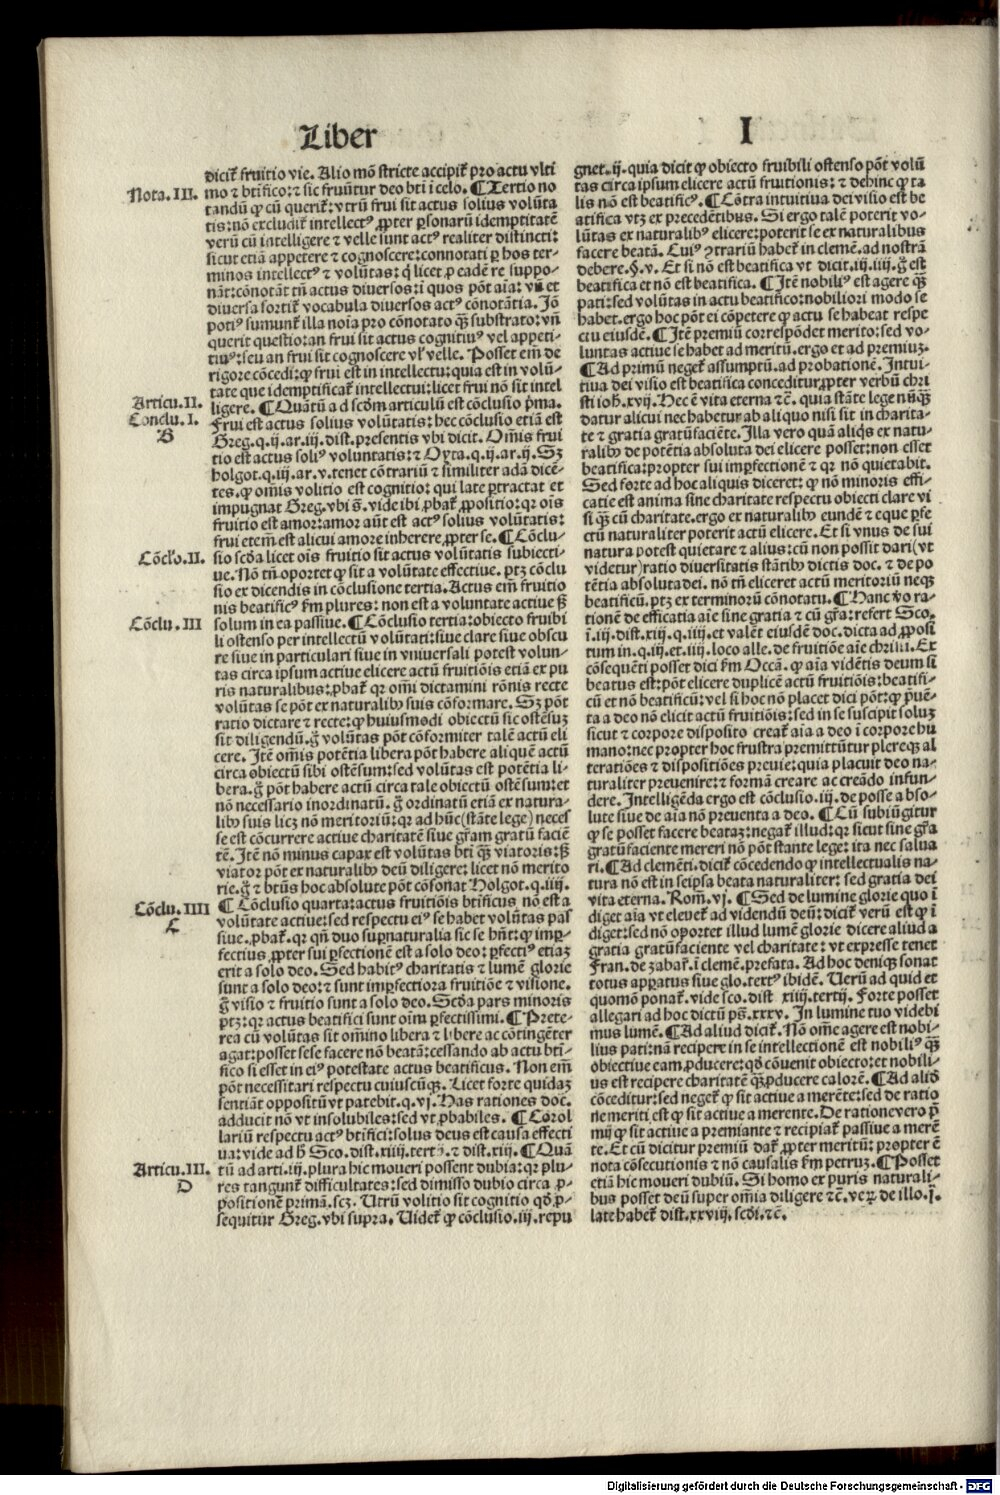 Liber I
dicit̃ fruitio vie. Alio mõ stricte accipit̃ pro actu vlti
Nota. III.
mo ⁊ btĩfico: ⁊ sic fruũtur deo btĩ ĩ celo. ¶ Tertio no
tandũ ꝙ cũ querit̃: vtrũ frui sit actus solius volũta
tis: nõ excludit̃ intellectꝰ ꝓpter ꝑsonarũ idemptitatẽ
verũ cũ intelligere ⁊ velle sunt actꝰ realiter distincti:
sicut etiã appetere ⁊ cognoscere: connotati ꝑ hos ter-
minos intellectꝰ ⁊ volũtas: q̃ licet ꝓ eadẽ re suppo-
nãt: cõnotãt tñ actus diuersos: ĩ quos põt aĩa: vñ et
diuersa sortit̃ vocabula diuersos actꝰ cõnotãtia. Jõ
potiꝰ sumunt̃ illa noĩa pro cõnotato q̃ȝ substrato: vñ
querit questio: an frui sit actus cognitiuꝰ vel appeti-
tiuꝰ: seu an frui sit cognoscere vl̃ velle. Posset em̃ de
rigore cõcedi: ꝙ frui est in intellectu: quia est in volũ-
tate que idemptificat̃ intellectui: licet frui nõ sit intel
Articu. II.
ligere. ¶ Quãtũ ad scđm articulũ est cõclusio p̃ma.
Conclu. I.
B
Frui est actus solius volũtatis: hec cõclusio etiã est
Greg. q. ij. ar. iij. dist. presentis vbi dicit. Om̃is frui
tio est actus soliꝰ voluntatis: ⁊ Oxta. q. ij. ar. ij. Sȝ
holgot. q. iij. ar. v. tenet cõtrariũ ⁊ similiter adã dicẽ-
tes. ꝙ om̃is volitio est cognitio: qui late ꝑtractat et
impugnat Greg. vbi s̃. vide ibi ꝓbat̃ ꝓpositio: qr oĩs
fruitio est amor: amor aũt est actꝰ solius volũtatis:
frui etem̃ est alicui amore inherere ꝓpter se. ¶ Cõclu-
Cõclo. II.
sio scđa licet oĩs fruitio sit actus volũtatis subiecti-
ue. Nõ tñ oportet ꝙ sit a volũtate effectiue. ptȝ cõclu
sio ex dicendis in cõclusione tertia. Actus em̃ fruitio
nis beatificꝰ f̃m plures: non est a voluntate actiue sȝ
Cõclu. III
solum in ea passiue. ¶ Cõclusio tertia: obiecto fruibi
li ostenso per intellectũ volũtati: siue clare siue obscu
re siue in particulari siue in vniuersali potest volun-
tas circa ipsum actiue elicere actũ fruitiõis etiã ex pu
ris naturalibus: ꝓbat̃ qr om̃i dictamini rõnis recte
volũtas se põt ex naturalibꝰ suis cõformare. Sȝ põt
ratio dictare ⁊ recte: ꝙ huiusmodi obiectũ sic ostẽsuȝ
sit diligendũ. g̃ volũtas põt cõformiter talẽ actũ eli
cere. Jtẽ om̃is potẽtia libera põt habere aliquẽ actũ
circa obiectũ sibi ostẽsum: sed volũtas est potẽtia li-
bera. g̃ põt habere actũ circa tale obiectũ ostẽsum: et
nõ necessario inordinatũ. g̃ ordinatũ etiã ex natura-
libꝰ suis licȝ nõ meritoriũ: qr ad hũc (stãte lege) neces
se est cõcurrere actiue charitatẽ siue gr̃am gratũ faciẽ
tẽ. Jtẽ nõ minus capax est volũtas btĩ q̃ȝ viatoris: sȝ
viator põt ex naturalibꝰ deũ diligere: licet nõ merito
rie. g̃ ⁊ btũs hoc absolute põt cõsonat Holgot. q. iiij.
Cõclu. IIII
C
¶ Cõclusio quarta: actus fruitiõis btĩficus nõ est a
volũtate actiue: sed respectu eiꝰ se habet volũtas pas
siue. ꝓbat̃. qr qñ duo sup̃naturalia sic se hñt: ꝙ imꝑ-
fectius ꝓpter sui ꝑfectionẽ est a solo deo: ꝑfectiꝰ etiaȝ
erit a solo deo. Sed habitꝰ charitatis ⁊ lumẽ glorie
sunt a solo deo: ⁊ sunt imꝑfectiora fruitiõe ⁊ visione.
g̃ visio ⁊ fruitio sunt a solo deo. Scđa pars minoris
ptȝ: qr actus beatifici sunt oĩm ꝑfectissimi. ¶ Prete-
rea cũ volũtas sit om̃ino libera ⁊ libere ac cõtingẽter
agat: posset sese facere nõ beatã: cessando ab actu btĩ-
fico si esset in eiꝰ potestate actus beatificus. Non em̃
põt necessitari respectu cuiuscũqȝ. Licet forte quidaȝ
sentiãt oppositũ vt patebit. q. vj. Has rationes doc.
adducit nõ vt insolubiles: sed vt ꝓbabiles. ¶ Corol
lariũ respectu actꝰ btĩfici: solus deus est causa effecti
ua: vide ad h̃ Sco. dist. xiiij. tertij. ⁊ dist. xij. ¶ Quã
Articu. III.
D
tũ ad arti. iij. plura hic moueri possent dubia: qr plu-
res tangunt̃ difficultates: sed dimisso dubio circa ꝓ-
positionẽ primã. scȝ. Utrũ volitio sit cognitio qđ ꝓ-
sequitur Greg. vbi supra. Uidet̃ ꝙ cõclusio. iij. repu
gnet. ij. quia dicit ꝙ obiecto fruibili ostenso põt volũ
tas circa ipsum elicere actũ fruitionis: ⁊ dehinc ꝙ ta
lis nõ est beatificꝰ. ¶ Cõtra intuitiua dei visio est be
atifica vtȝ ex precedẽtibus. Si ergo talẽ poterit vo-
lũtas ex naturalibꝰ elicere: poterit se ex naturalibus
facere beatã. Cuiꝰ ꝯtrariũ habet̃ in clemẽ. ad nostrã
debere. §. v. Et si nõ est beatifica vt dicit. iij. iiij. g̃ est
beatifica et nõ est beatifica. ¶ Jtẽ nobiliꝰ est agere q̃ȝ
pati: sed volũtas in actu beatifico: nobiliori modo se
habet. ergo hoc põt ei cõpetere ꝙ actu se habeat respe
ctu eiusdẽ. ¶ Jtẽ premiũ correspõdet merito: sed vo-
luntas actiue se habet ad meritũ. ergo et ad premiuȝ.
¶ Ad primũ negat̃ assumptũ. ad probationẽ. Jntui-
tiua dei visio est beatifica conceditur, ꝓpter verbũ chri
sti ioh. xvij. Hec ẽ vita eterna ⁊c̃. quia stãte lege nũq̃ȝ
datur alicui nec habetur ab aliquo nisi sit in charita-
te ⁊ gratia gratũ faciẽte. Jlla vero quã aliq̃s ex natu-
ralibꝰ de potẽtia absoluta dei elicere posset: non esset
beatifica: propter sui imꝑfectionẽ ⁊ qr nõ quietabit.
Sed forte ad hoc aliquis diceret: ꝙ nõ minoris effi-
catie est anima sine charitate respectu obiecti clare vi
si q̃ȝ cũ charitate. ergo ex naturalibꝰ eundẽ ⁊ eque ꝑfe
ctũ naturaliter poterit actũ elicere. Et si vnus de sui
natura potest quietare ⁊ alius: cũ non possit dari (vt
videtur) ratio diuersitatis stãtibꝰ dictis doc. ⁊ de po
tẽtia absoluta dei. nõ tñ eliceret actũ meritoriũ neqȝ
beatificũ. ptȝ ex terminorũ cõnotatu. ¶ Hanc vo ra-
tionẽ de efficatia aĩe sine gratia ⁊ cũ gr̃a: refert Sco.
ĩ. iij. dist. xiij. q. iiij. et valẽt eiusdẽ doc. dicta ad ꝓposi
tum in. q. ij. et. iiij. loco alle. de fruitiõe aĩe chr̃i. Ex
cõsequẽti posset dici f̃m Occã. ꝙ aĩa vidẽtis deum si
beatus est: põt elicere duplicẽ actũ fruitiõis: beatifi-
cũ et nõ beatificũ: vel si hoc nõ placet dici põt: ꝙ p̃uẽ-
ta a deo nõ elicit actũ fruitiõis: sed in se suscipit soluȝ
sicut ⁊ corpore disposito creat̃ aĩa a deo ĩ corpore hu
mano: nec propter hoc frustra premittũtur plereqȝ al
teratiões ⁊ dispositiões preuie: quia placuit deo na-
turaliter preuenire: ⁊ formã creare ac creãdo infun-
dere. Jntelligẽda ergo est cõclusio. iij. de posse abso-
lute siue de aĩa nõ preuenta a deo. ¶ Cũ subiũgitur
ꝙ se posset facere beataȝ: negat̃ illud: qr sicut sine gr̃a
gratũ faciente mereri nõ põt stante lege: ita nec salua
ri. ¶ Ad clemẽti. dicit̃ cõcedendo ꝙ intellectualis na-
tura nõ est in seipsa beata naturaliter: sed gratia dei
vita eterna. Rom̃. vj. ¶ Sed de lumine glorie quo ĩ
diget aĩa vt eleuet̃ ad videndũ deũ: dicit̃ verũ est ꝙ ĩ
diget: sed nõ oportet illud lumẽ glorie dicere aliud a
gratia gratũ faciente vel charitate: vt expresse tenet
Fran. de zabar̃. ĩ clemẽ. prefata. Ad hoc deniqȝ sonat
totus apparatus siue glo. textꝰ ibidẽ. Uerũ ad quid et
quomõ ponat̃. vide sco. dist xiiij. tertij. Forte posset
allegari ad hoc dictũ ps̃. xxxv. Jn lumine tuo videbi
mus lumẽ. ¶ Ad aliud dicit̃. Nõ om̃e agere est nobi-
lius pati: nã recipere in se intellectionẽ est nobiliꝰ q̃ȝ
obiectiue eam ꝓducere: qđ cõuenit obiecto: et nobili-
us est recipere charitatẽ q̃ȝ ꝓducere calorẽ. ¶ Ad aliđ
cõceditur: sed negat̃ ꝙ sit actiue a merẽte: sed de ratio
ne meriti est ꝙ sit actiue a merente. De ratione vero p̃
mij ꝙ sit actiue a premiante ⁊ recipiat̃ passiue a merẽ
te. Et cũ dicitur premiũ dat̃ ꝓpter meritũ: propter ẽ
nota cõsecutionis ⁊ nõ causalis f̃m petruȝ. ¶ Posset
etiã hic moueri dubiũ. Si homo ex puris naturali-
bus posset deũ super om̃ia diligere ⁊c̃. veꝝ de illo. j.
late habet̃ dist. xxviij. scđi. ⁊c̃.
Digitalisierung gefördert durch die Deutsche Forschungsgemeinschaft - DFG